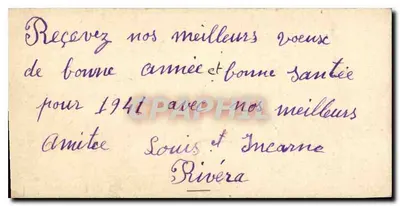 Reçevez nos meilleurs voeux
de bonne année et bonne santée
pour 1941 avec nos meilleurs
amitée Louis et Incarna
Rivéra